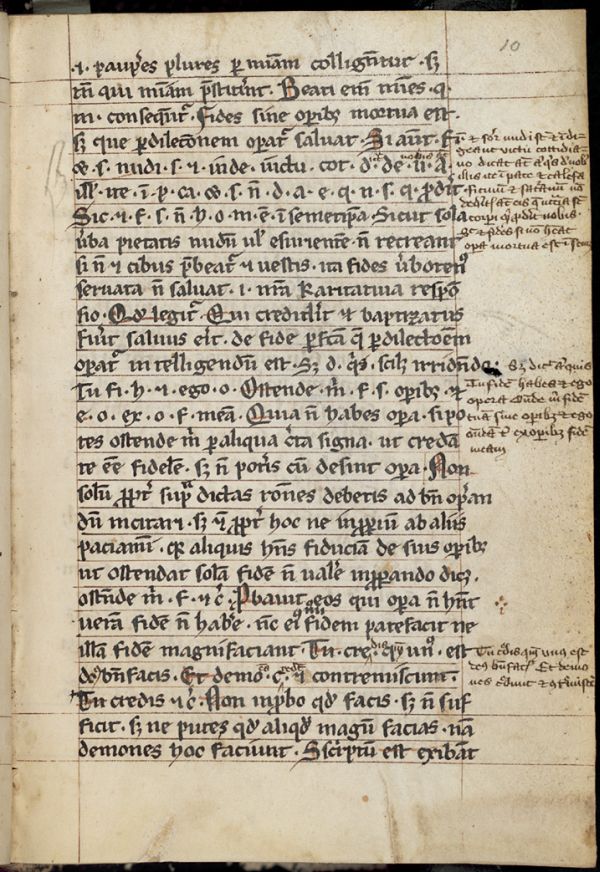 10
.i. paup̄es plures per mīam colligūtur. sꝫ
tm̄ qui mīam p̄stiterīt. Beati enī mīes. q̄.
m. consequr̄. Fides sine oꝑibꝫ mortua est.
sꝫ que per dilectōnem operat̄ saluat. Si aut̄. Fr̄
s. nudi. s. ⁊ inde. uictu. cot. d. de. u. a.
ill'. ite. ī. p. ca. s. n̄. d. a. e. q. n. s. q. ꝓdīt.
Sic. ⁊ f. s. n̄. h. o. m. ē. ī semetipsa. Sicut sola
uba pietatis nudū ul' esuriente. n̄ recreant
si n̄ ⁊ cibus p̄beat̄ ⁊ uestis. ita fides ubotenꝰ
seruata n̄ saluat. i. nrām Karitatiua respō
sio. Qd' legit̄. Qui credidīt ⁊ baptizatus
fuīt saluus eīt. de fide perfcā q̄ per dilectōem
operat̄ intelligendū est. Sꝫ d. q̄s. scilꝫ irridn̄do.
Tu fi. h. ⁊. ego. o. Ostende. m̄. f. s. oꝑibꝫ. ⁊
e. o. ex. o. f. meā. Quia n̄ habes oꝑa. si po
tes ostende m̄ per aliqua c̄ta signa. ut credā
te eē fidelē. sꝫ n̄ pot̄is cū desint oꝑa. Non
solū ꝓpt̄ sup̄a dictas rōnes debetis ad bn̄ oꝑan
dū incitari. sꝫ ⁊ ꝓpt̄ hoc ne inꝓpiū ab aliis
paciamī. qꝛ aliquis hn̄s fiduciā de suis oꝑibꝫ
ut ostendat solā fidē n̄ ualē inꝓpando dicꝫ.
ostn̄de m̄. f. ⁊ c̄. Pbauit eos qui oꝑa n̄ hn̄t
uerā fidē n̄ habē. nc̄ eī fidem patefacit ne
illā fidē magnifaciant. Tu. cre qm̄ unꝰ. est
dꝰ bn̄ facis. Et demo. c. ⁊ contremiscunt.
Tu credis ⁊ c̄. Non inp̄bo qd' facis. sꝫ n̄ suf
ficit. sꝫ ne putes qd' aliqd' magnū facias. nā
demones hoc faciunt. Sscriptū est exibāt
n̄ ⁊ sor̄ nudi st̄ ⁊ īdi
geant uictu cottidia
no dicat at̄ aqs d' uob'
illis ite ī pace ⁊ calefa
cimini ⁊ satamī nō
dedīts at̄ eis q̄ nēcia st̄
corpi qd ꝓdīt uobis.
Sc̄ ⁊ fides si nō hēat
oꝑa mortua est ī sem̄
Sꝫ dic̄ aquis
Tu fidē habes ⁊ ego
oꝑera Onde m̄ fidē
tuā sine oꝑibꝫ ⁊ ego
ondā t̄ ex oꝑibꝫ fidē
meam
Tu c̄dis qm̄ unus est
deꝰ bn̄ facis Et demo
nes c̄dunt ⁊